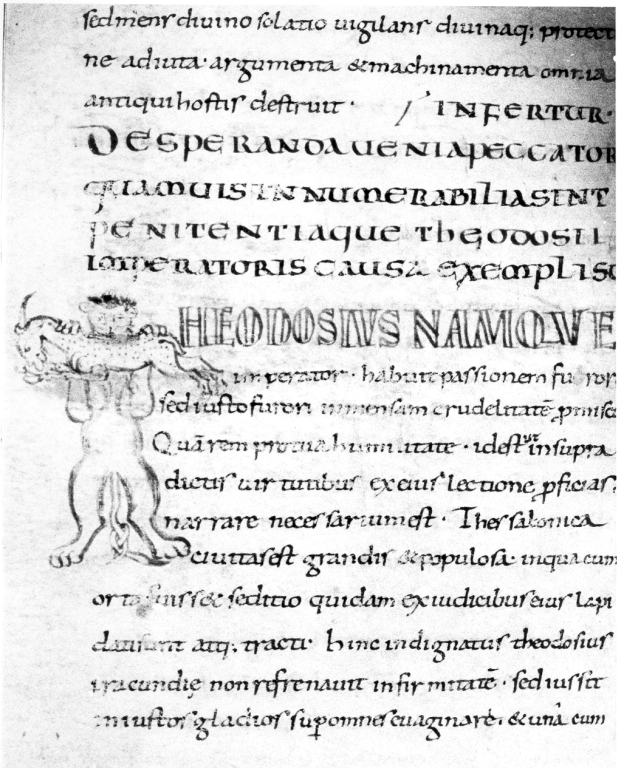 sedmens divino solatio vigilans divinaq; protect
ne adiuta· argumenta &machinamenta omnia
antiqui hostis destruit · INFERTUR·
DESPERANDA UENIA PECCATOR
QUAMUIS INNUMERABILIA SINT
PENITENTIAQUE THEODOSII
IMPERATORIS CAUSA EXEMPLI SC
THEODOSIVS NAMQVE
imperator· habuit passionem furor
sed iusto furori inmensam crudelitatē p̄misc
Quārem protua humilitate · idest ut insupra
dictis uirtutibus exeius lectione p̄ficias;
narrare necessarium est · Thessalonica
ciuitas est grandis &populosa· inqua cum
orta fuiss& seditio quidam exiudicibus eius lapi
dati sunt atq; tracti· hinc indignatus theodosius
iracundię non refrenauit infirmitatē · sed iussit
iniustos gladios sup̄ omnes euaginare, &unā cum